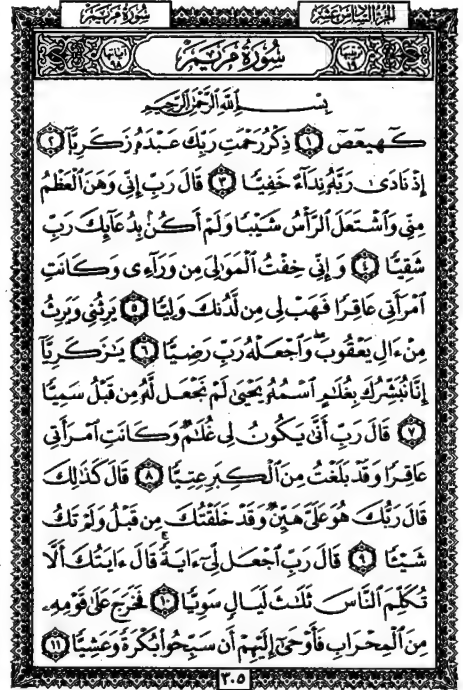 الجزء السادس عشر
سورة مريم
ترتيبها ١٩
سُورَةُ مَرْيَمَ
آياتها ٩٨
بِسْمِ ٱللَّهِ ٱلرَّحْمَٰنِ ٱلرَّحِيمِ
كٓهيعٓصٓ ١ ذِكْرُ رَحْمَتِ رَبِّكَ عَبْدَهُۥ زَكَرِيَّآ ٢
إِذْ نَادَىٰ رَبَّهُۥ نِدَآءً خَفِيًّا ٣ قَالَ رَبِّ إِنِّى وَهَنَ ٱلْعَظْمُ
مِنِّى وَٱشْتَعَلَ ٱلرَّأْسُ شَيْبًا وَلَمْ أَكُنۢ بِدُعَآئِكَ رَبِّ
شَقِيًّا ٤ وَإِنِّى خِفْتُ ٱلْمَوَٰلِىَ مِن وَرَآءِى وَكَانَتِ
ٱمْرَأَتِى عَاقِرًا فَهَبْ لِى مِن لَّدُنكَ وَلِيًّا ٥ يَرِثُنِى وَيَرِثُ
مِنْ ءَالِ يَعْقُوبَ ۖ وَٱجْعَلْهُ رَبِّ رَضِيًّا ٦ يَٰزَكَرِيَّآ
إِنَّا نُبَشِّرُكَ بِغُلَٰمٍ ٱسْمُهُۥ يَحْيَىٰ لَمْ نَجْعَل لَّهُۥ مِن قَبْلُ سَمِيًّا
٧ قَالَ رَبِّ أَنَّىٰ يَكُونُ لِى غُلَٰمٌ وَكَانَتِ ٱمْرَأَتِى
عَاقِرًا وَقَدْ بَلَغْتُ مِنَ ٱلْكِبَرِ عِتِيًّا ٨ قَالَ كَذَٰلِكَ
قَالَ رَبُّكَ هُوَ عَلَىَّ هَيِّنٌ وَقَدْ خَلَقْتُكَ مِن قَبْلُ وَلَمْ تَكُ
شَيْـًٔا ٩ قَالَ رَبِّ ٱجْعَل لِّىٓ ءَايَةً ۚ قَالَ ءَايَتُكَ أَلَّا
تُكَلِّمَ ٱلنَّاسَ ثَلَٰثَ لَيَالٍ سَوِيًّا ١٠ فَخَرَجَ عَلَىٰ قَوْمِهِۦ
مِنَ ٱلْمِحْرَابِ فَأَوْحَىٰٓ إِلَيْهِمْ أَن سَبِّحُوا۟ بُكْرَةً وَعَشِيًّا ١١
٣٠٥